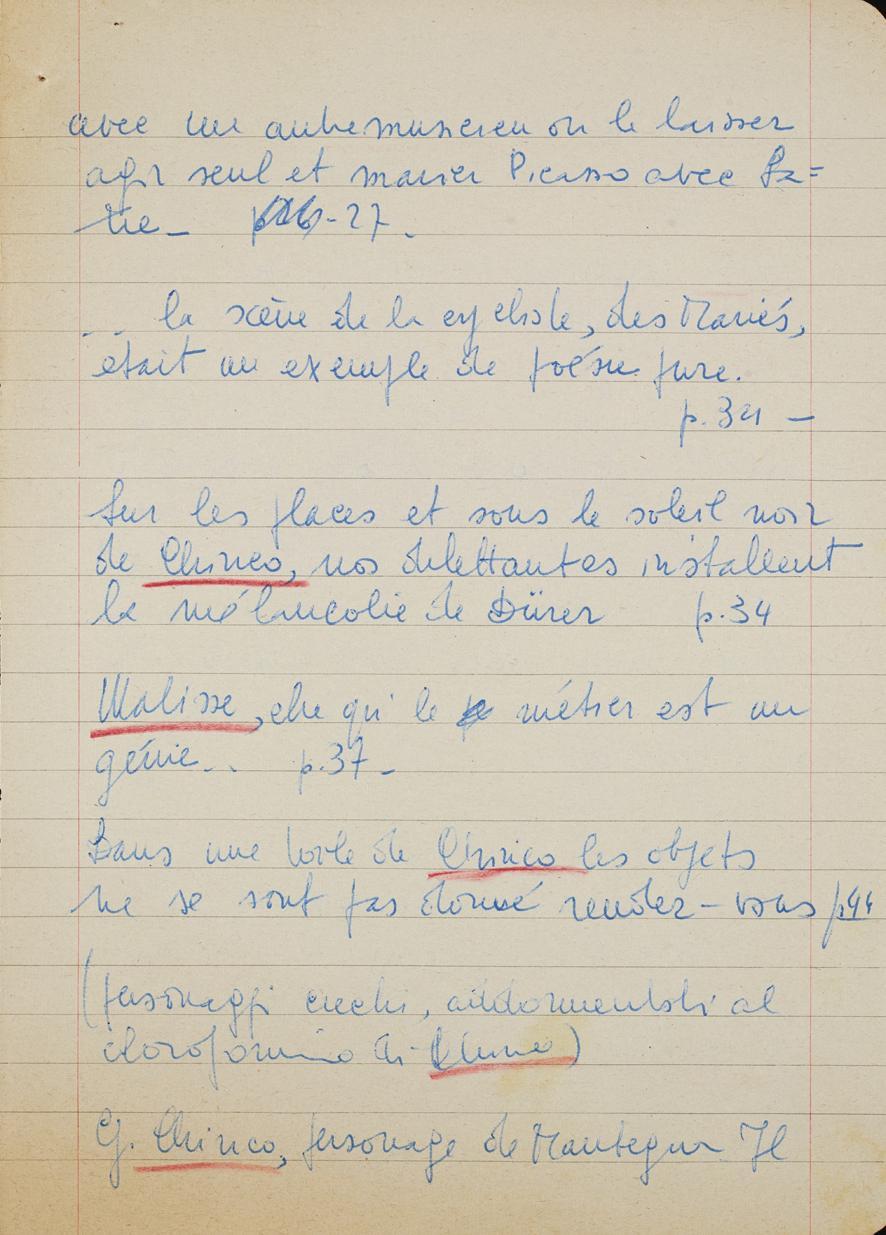 avec un autre musicien ou le laisser
agir seul et marier Picasso avec Sa=
tie_ -27.
.. la scène de la cycliste, des Mariés,
était un exemple de poésie pure.
p.34 -
Sur les places et sous le soleil noir
de Chirico, nos dilettantes installent
la mélancolie de Dürer p.34
Matisse, che qui le métier est un
génie... p.37-
Dans une toile de Chirico les objets
ne se sont pas donné rendez-vous p44
(personaggi ciechi, addormentati al
cloroformio di Chirico)
G. Chirico, personage de Mantegna. Il